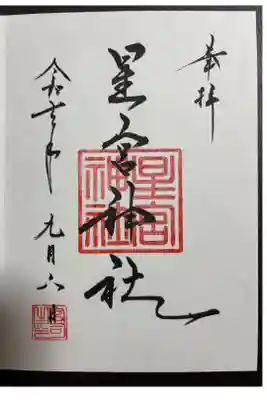 奉拝
星宮神社
星宮
神社
令和年 九月六日